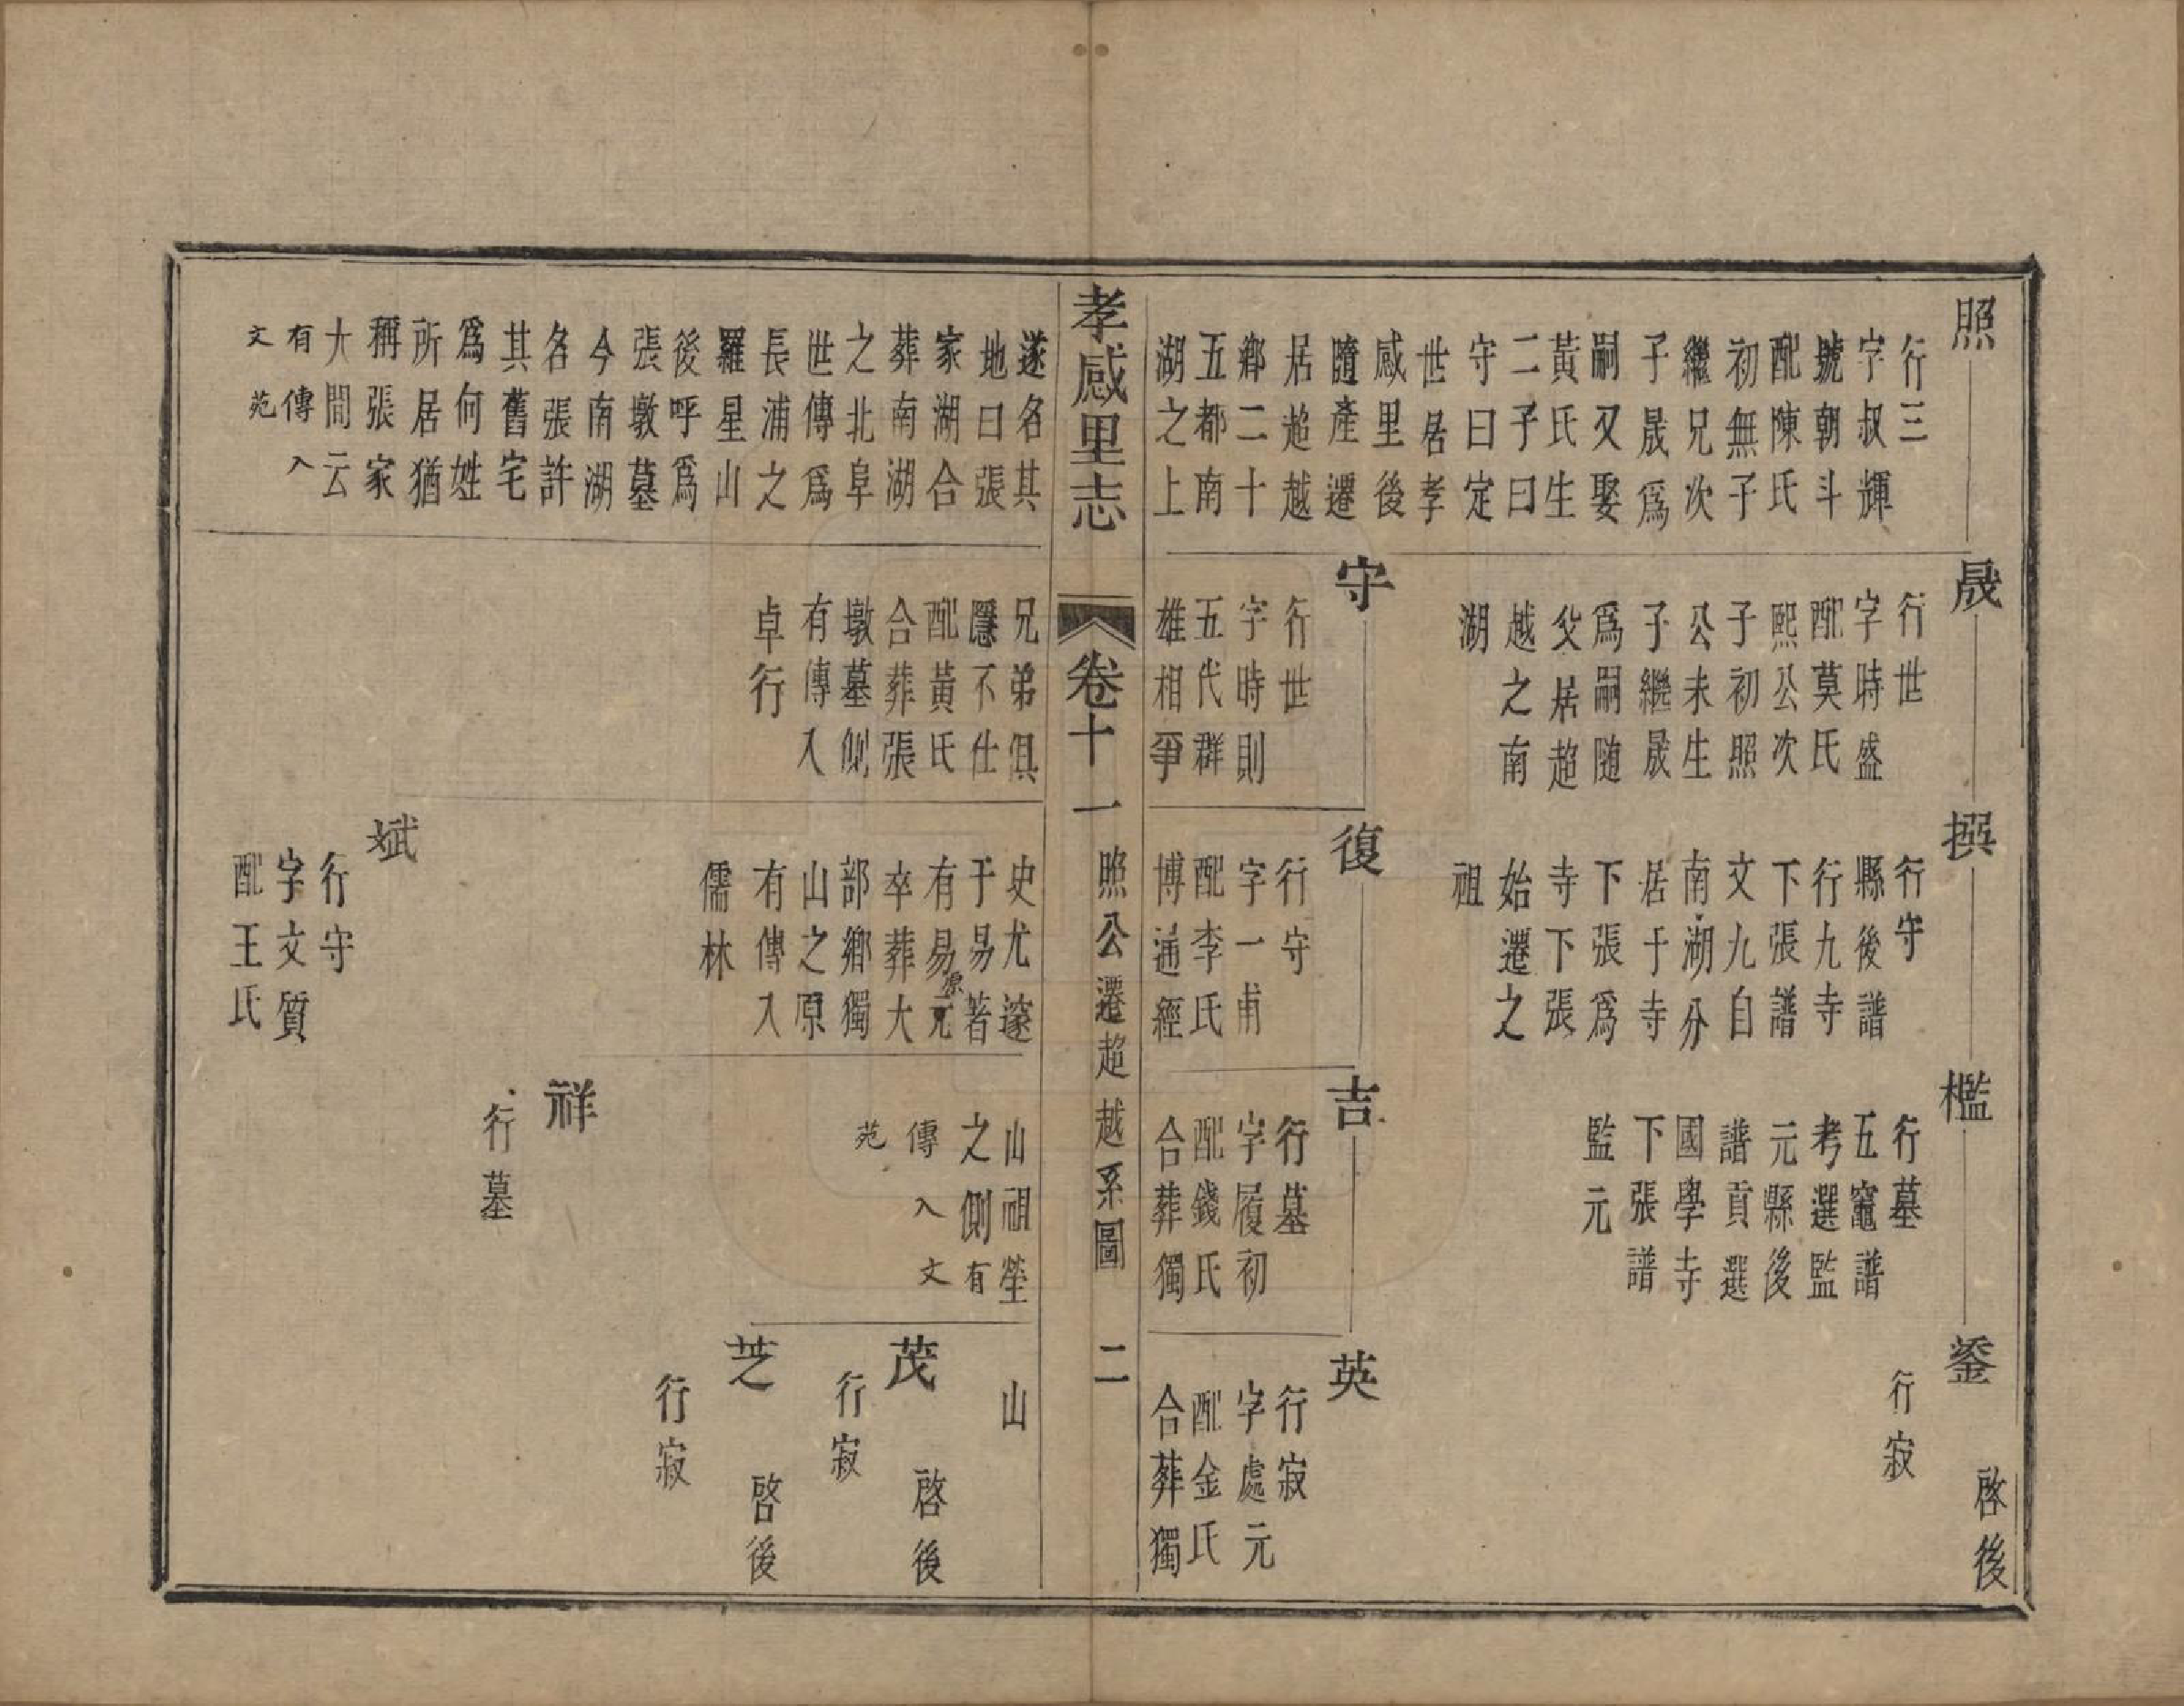 照
行三
字叔輝
號朝斗
配陳氏
初無子
繼兄次
子晟爲
嗣又娶
黃氏生
二子曰
守曰定
世居孝
感里後
隨產遷
居超越
鄉二十
五都南
湖之上
晟
行世
字時盛
配莫氏
熙公次
子初照
公未生
子繼晟
爲嗣随
父居超
越之南
湖
撰
行守
縣後譜
行九寺
下張譜
文九自
南湖分
居于寺
下張爲
寺下張
始遷之
祖
檻
行墓
五竈譜
考選監
元縣後
譜貢選
國學寺
下張譜
監元
鋈
行寂
啓後
守
行世
字時則
五代群
雄相爭
復
行守
字一甫
配李氏
博通經
吉
行墓
字履初
配錢氏
合葬獨
英
行寂
字處元
配金氏
合葬獨
孝感里志
卷十一
照公遷超越系圖
二
遂名其
地曰張
家湖合
葬南湖
之北阜
世傳爲
長浦之
羅星山
後呼爲
張墩墓
今南湖
名張許
其舊宅
爲何姓
所居猶
稱張家
大閒云
有傳入
文苑
兄弟俱
隱不仕
配黃氏
合葬張
墩墓側
有傳入
卓行
史尤邃
于易著
有易元
原
卒葬大
部鄉獨
山之原
有傳入
儒林
山祖塋
之側有
傳入文
苑
山
茂
行寂
啓後
芝
行寂
啓後
祥
行墓
斌
行守
字文質
配王氏